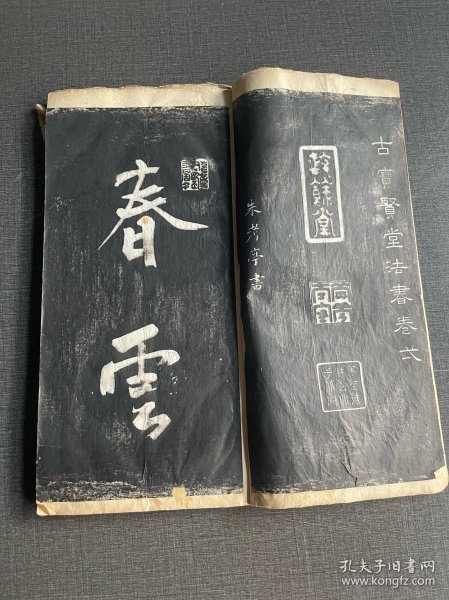 古寶賢堂法書卷
朱考亭書
春雲
孔夫子旧书网
www.kongfz.com